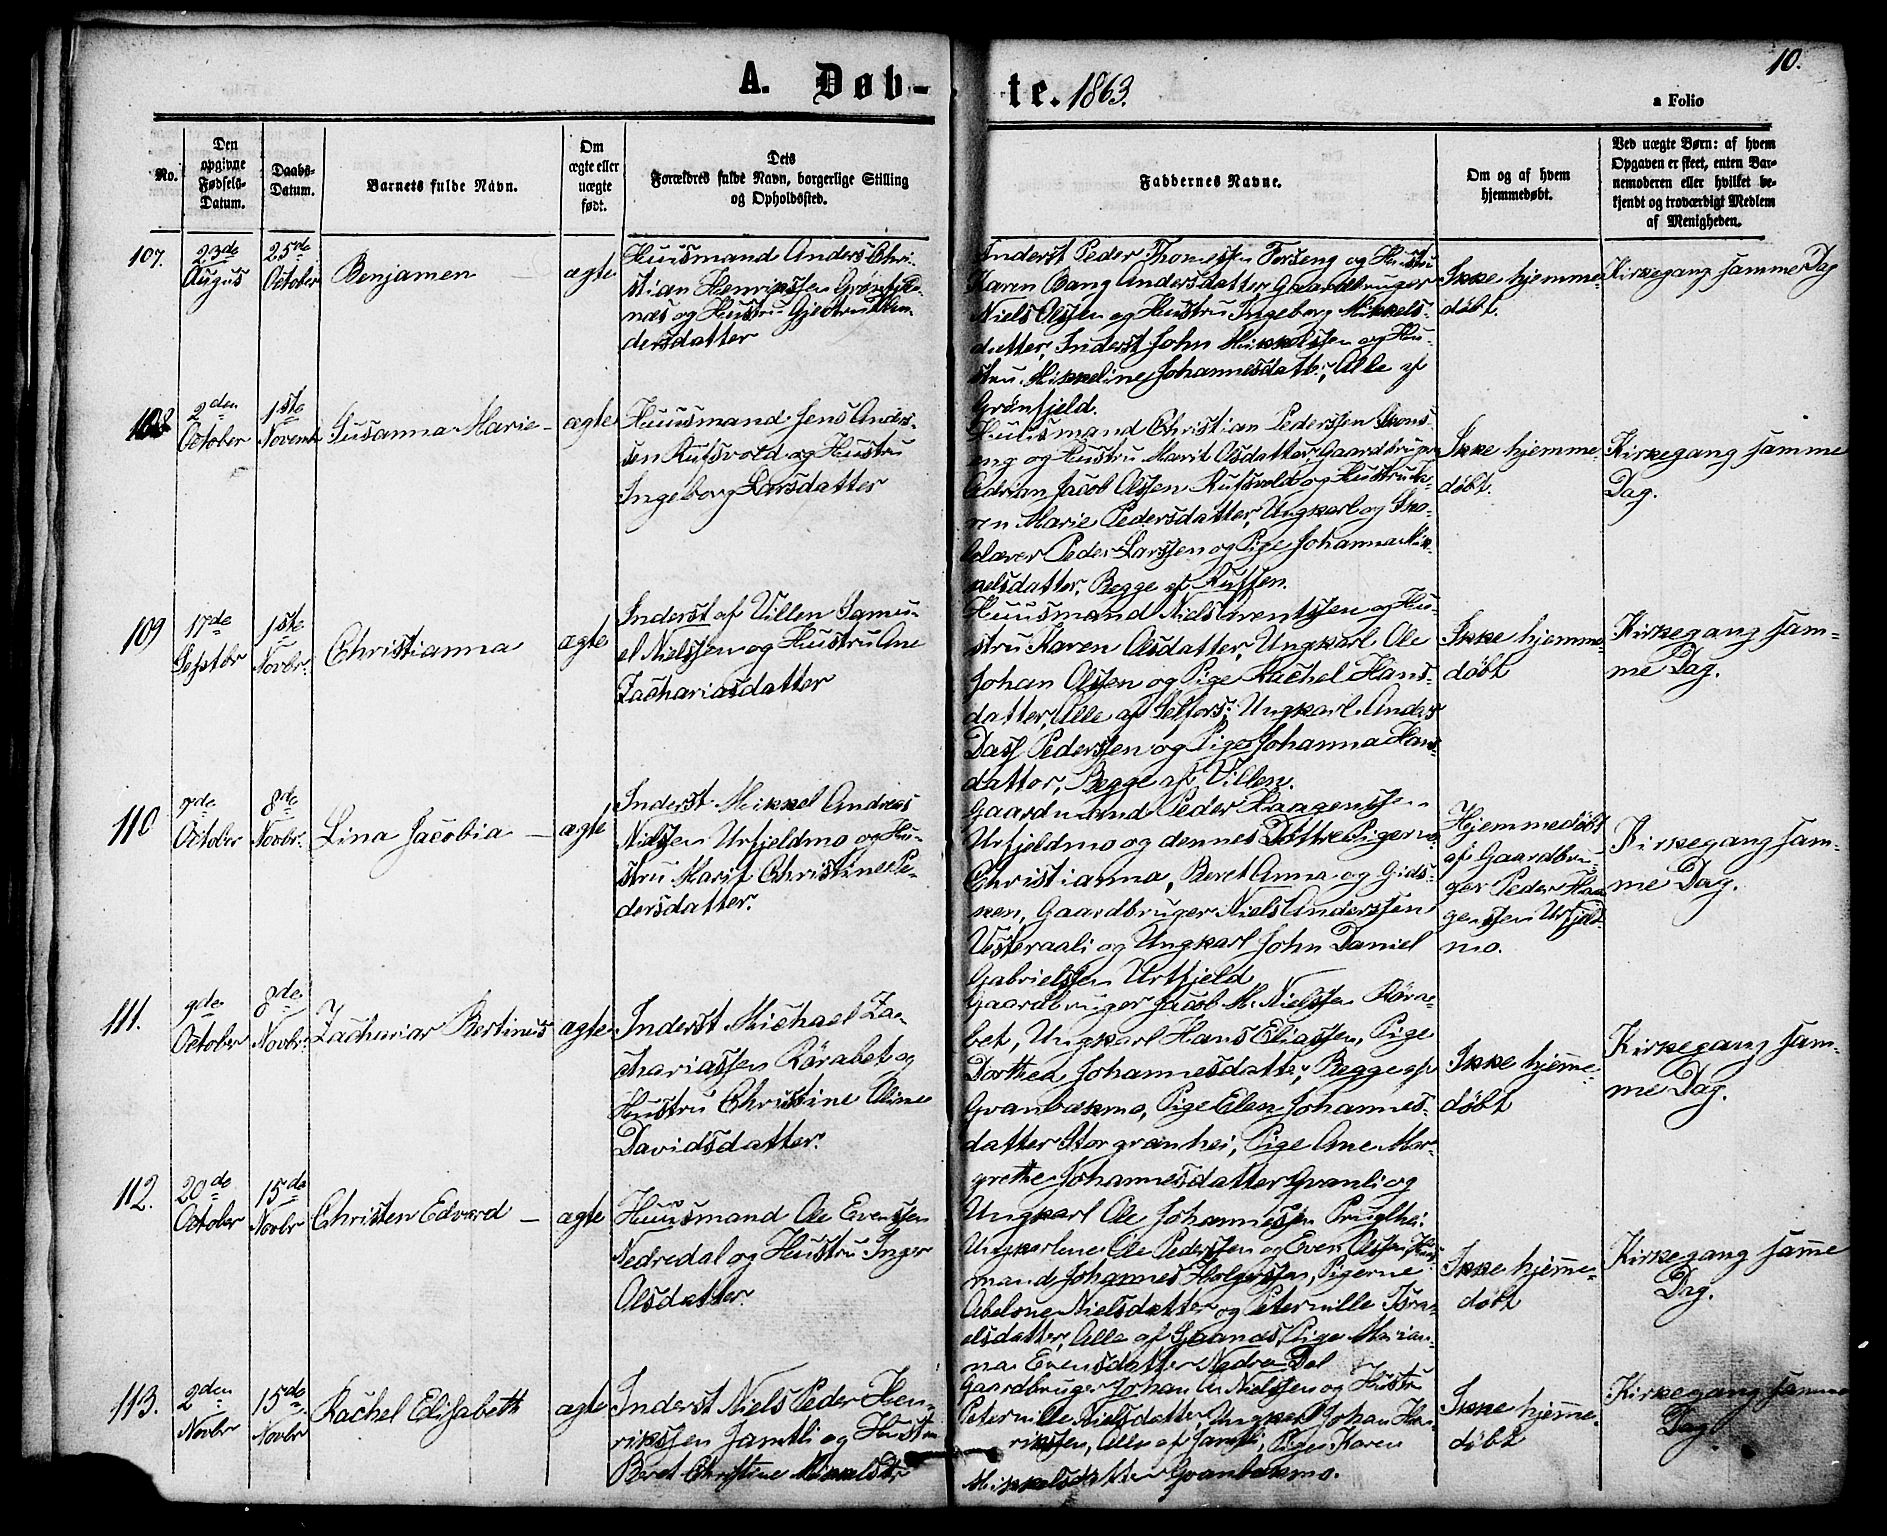 10.
A. Døb- te. 1863.
a Folio
No.
Den opgivne Fødsels-Datum.
Daabs-Datum.
Barnets fulde Navn.
Om ægte eller uægte født.
Dets Forældres fulde Navn, borgerlige Stilling og Opholdssted.
Faddernes Navne.
Om og af hvem hjemmedøbt.
Ved uægte Børn: af hvem Opgaven er skeet, enten Barnemoderen eller hvilket bekjendt og troværdigt Medlem af Menigheden.
107.
23de
Augus
25de
October
Benjamen
ægte
Huusmand Anders Chri-
stian Henrikssen Grønfjeld-
næs og Hustru Gjertru
dersdatter
Inderst Peder Thomessen Forseng og Hustru
Karen Bang Andersdatter, Gaardbruger
Niels Olssen og Hustru Ingeborg Mikkels-
datter, Inderst John Mikkelssen og Hu-
stru Mikkeline Johannesdattr; Alle af
Grønfjeld.
Ikke hjemme-
døbt.
Kirkegang samme Dag
108
2den
October
1ste
Novemb
Susanna Marie -
ægte
Huusmand Jens Anders-
sen Rufsvold og Hustru
Ingeborg Larsdatter
Huusmand Christian Pederssen Skons-
eng og Hustru Marit Osdatter, Gaardbruger
Adrian Jacob Olssen Rufsvold og Hustru Ka-
ren Marie Pedersdatter, Ungkarl og Sko-
lelærer Peder Larssen og Pige Johanna Mik-
kelsdatter, Begge af Russen.
Ikke hjemme-
døbt.
Kirkegang samme
Dag.
109
17de
Septbr
1ste
Novbr.
Christianna
ægte
Inderst af Villen Samu-
el Nielssen og Hustru Ane
Zachariasdatter
Huusmand Niels Arentssen og Hu-
stru Karen Olsdatter, Ungkarl Ole
Johan Olssen og Pige Rachel Hans-
datter, Alle af Selfors; Ungkarl Anders
Dass Pederssen og Pige Johanna Hans-
datter, Begge af Villen.
Ikke hjemme-
døbt
Kirkegang sam-
me Dag.
110
7de
October
8de
Novbr.
Lina Jacobia -
ægte
Inderst Mikkel Andreas
Nielssen Urfjeldmo og Hu-
stru Marit Christine Pe-
dersdatter.
Gaardmand Peder Haagenssen
Urfjeldmo og dennes Døttre Pigerne
Christianna, Beret Anna og Gids-
ken, Gaardbruger Niels Anderssen
Vesteraali og Ungkarl John Daniel
Gabrielssen Urtfjeld
Hjemmedøbt
af Gaardbru-
ger Peder Haa-
genssen Urfjeld-
mo.
Kirkegang sam-
me Dag.
111.
9de
October
8de
Novbr.
Zachariar Bertinus
ægte
Inderst Michael Za-
chariassen Rørabet og
Hustru Christine Oline
Davidsdatter.
Gaardbruger Jacob M. Nielssen Røra-
bet, Ungkarl Hans Eliassen, Pige
Dorthea Johannesdatter, Begge af
Granbækmo, Pige Elen Johannes-
datter Storgrænhei, Pige Ane Mar-
grethe Johannesdatter Granli og
Ungkarl Ole Johannessen Pruglhei.
Ikke hjemme-
døbt
Kirkegang sam-
me Dag.
112.
20de
October
15de
Novbr
Christen Edvard -
ægte
Huusmand Ole Evenssen
Nedredal og Hustru Inger
Olsdatter.
Ungkarlene Ole Pederssen og Even Olssen, Huus-
mand Johannes Holgerssen, Pigerne
Abelone Nielsdatter og Peternille Isra-
elsdatter, Alle af Pige Marian-
na Evensdatter Nedre Dal
Ikke hjemme-
døbt
Kirkegang samme
Dag.
113.
2den
Novbr
15de
Novbr
Rachel Elisabeth
ægte
Inderst Niels Peder Hen-
rikssen Jamtli og Hustru
Beret Christine Mikkelsdtr
Gaardbruger Johan A. Nielssen og Hustru
Peternille Nielsdatter, Ungkarl Johan Hen-
rikssen, Alle af Jamtli, Pige Karen
Mikkelsdatter Granbækmo.
Ikke hjemme-
døbt
Kirkegang samme
Dag